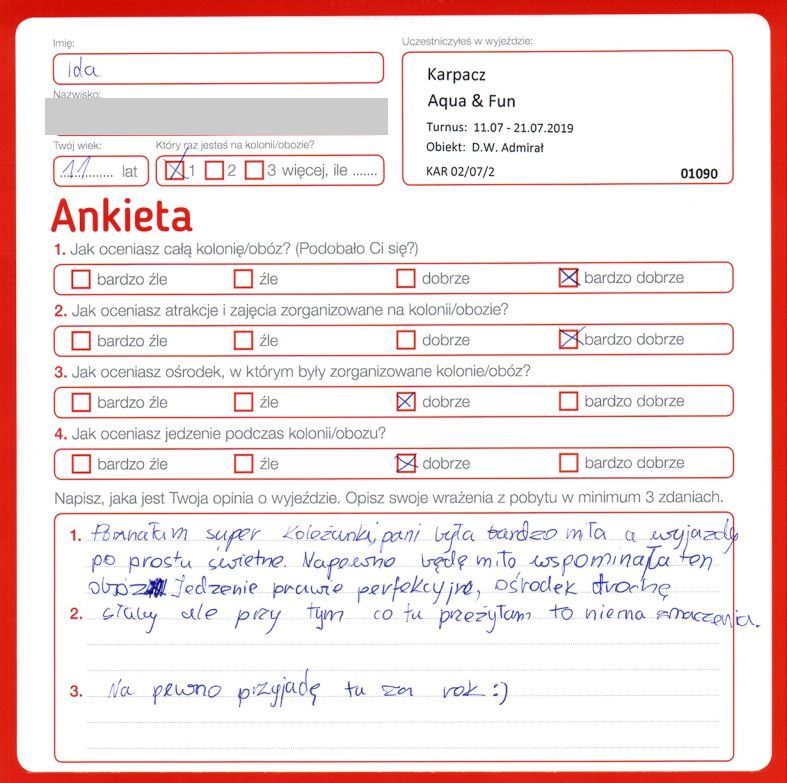 Imię:
ida
Nazwisko:
Twój wiek:
11 lat
Który raz jesteś na kolonii/obozie?
1 2 3 więcej, ile .......
Uczestniczyłeś w wyjeździe:
Karpacz
Aqua & Fun
Turnus: 11.07 - 21.07.2019
Obiekt: D.W. Admirał
KAR 02/07/2 01090
Ankieta
1. Jak oceniasz całą kolonię/obóz? (Podobało Ci się?)
bardzo źle źle dobrze bardzo dobrze
2. Jak oceniasz atrakcje i zajęcia zorganizowane na kolonii/obozie?
bardzo źle źle dobrze bardzo dobrze
3. Jak oceniasz ośrodek, w którym były zorganizowane kolonie/obóz?
bardzo źle źle dobrze bardzo dobrze
4. Jak oceniasz jedzenie podczas kolonii/obozu?
bardzo źle źle dobrze bardzo dobrze
Napisz, jaka jest Twoja opinia o wyjeździe. Opisz swoje wrażenia z pobytu w minimum 3 zdaniach.
1. super koleżanki, pani była bardzo miła a wyjazdy
po prostu świetne. Napewno będę miło wspominała ten
obóz Jedzenie prawie perfekcyjne, ośrodek trochę
2. słaby ale przy tym co tu przeżyłam to niema znaczenia.
3. Na pewno przyjadę tu za rok :)